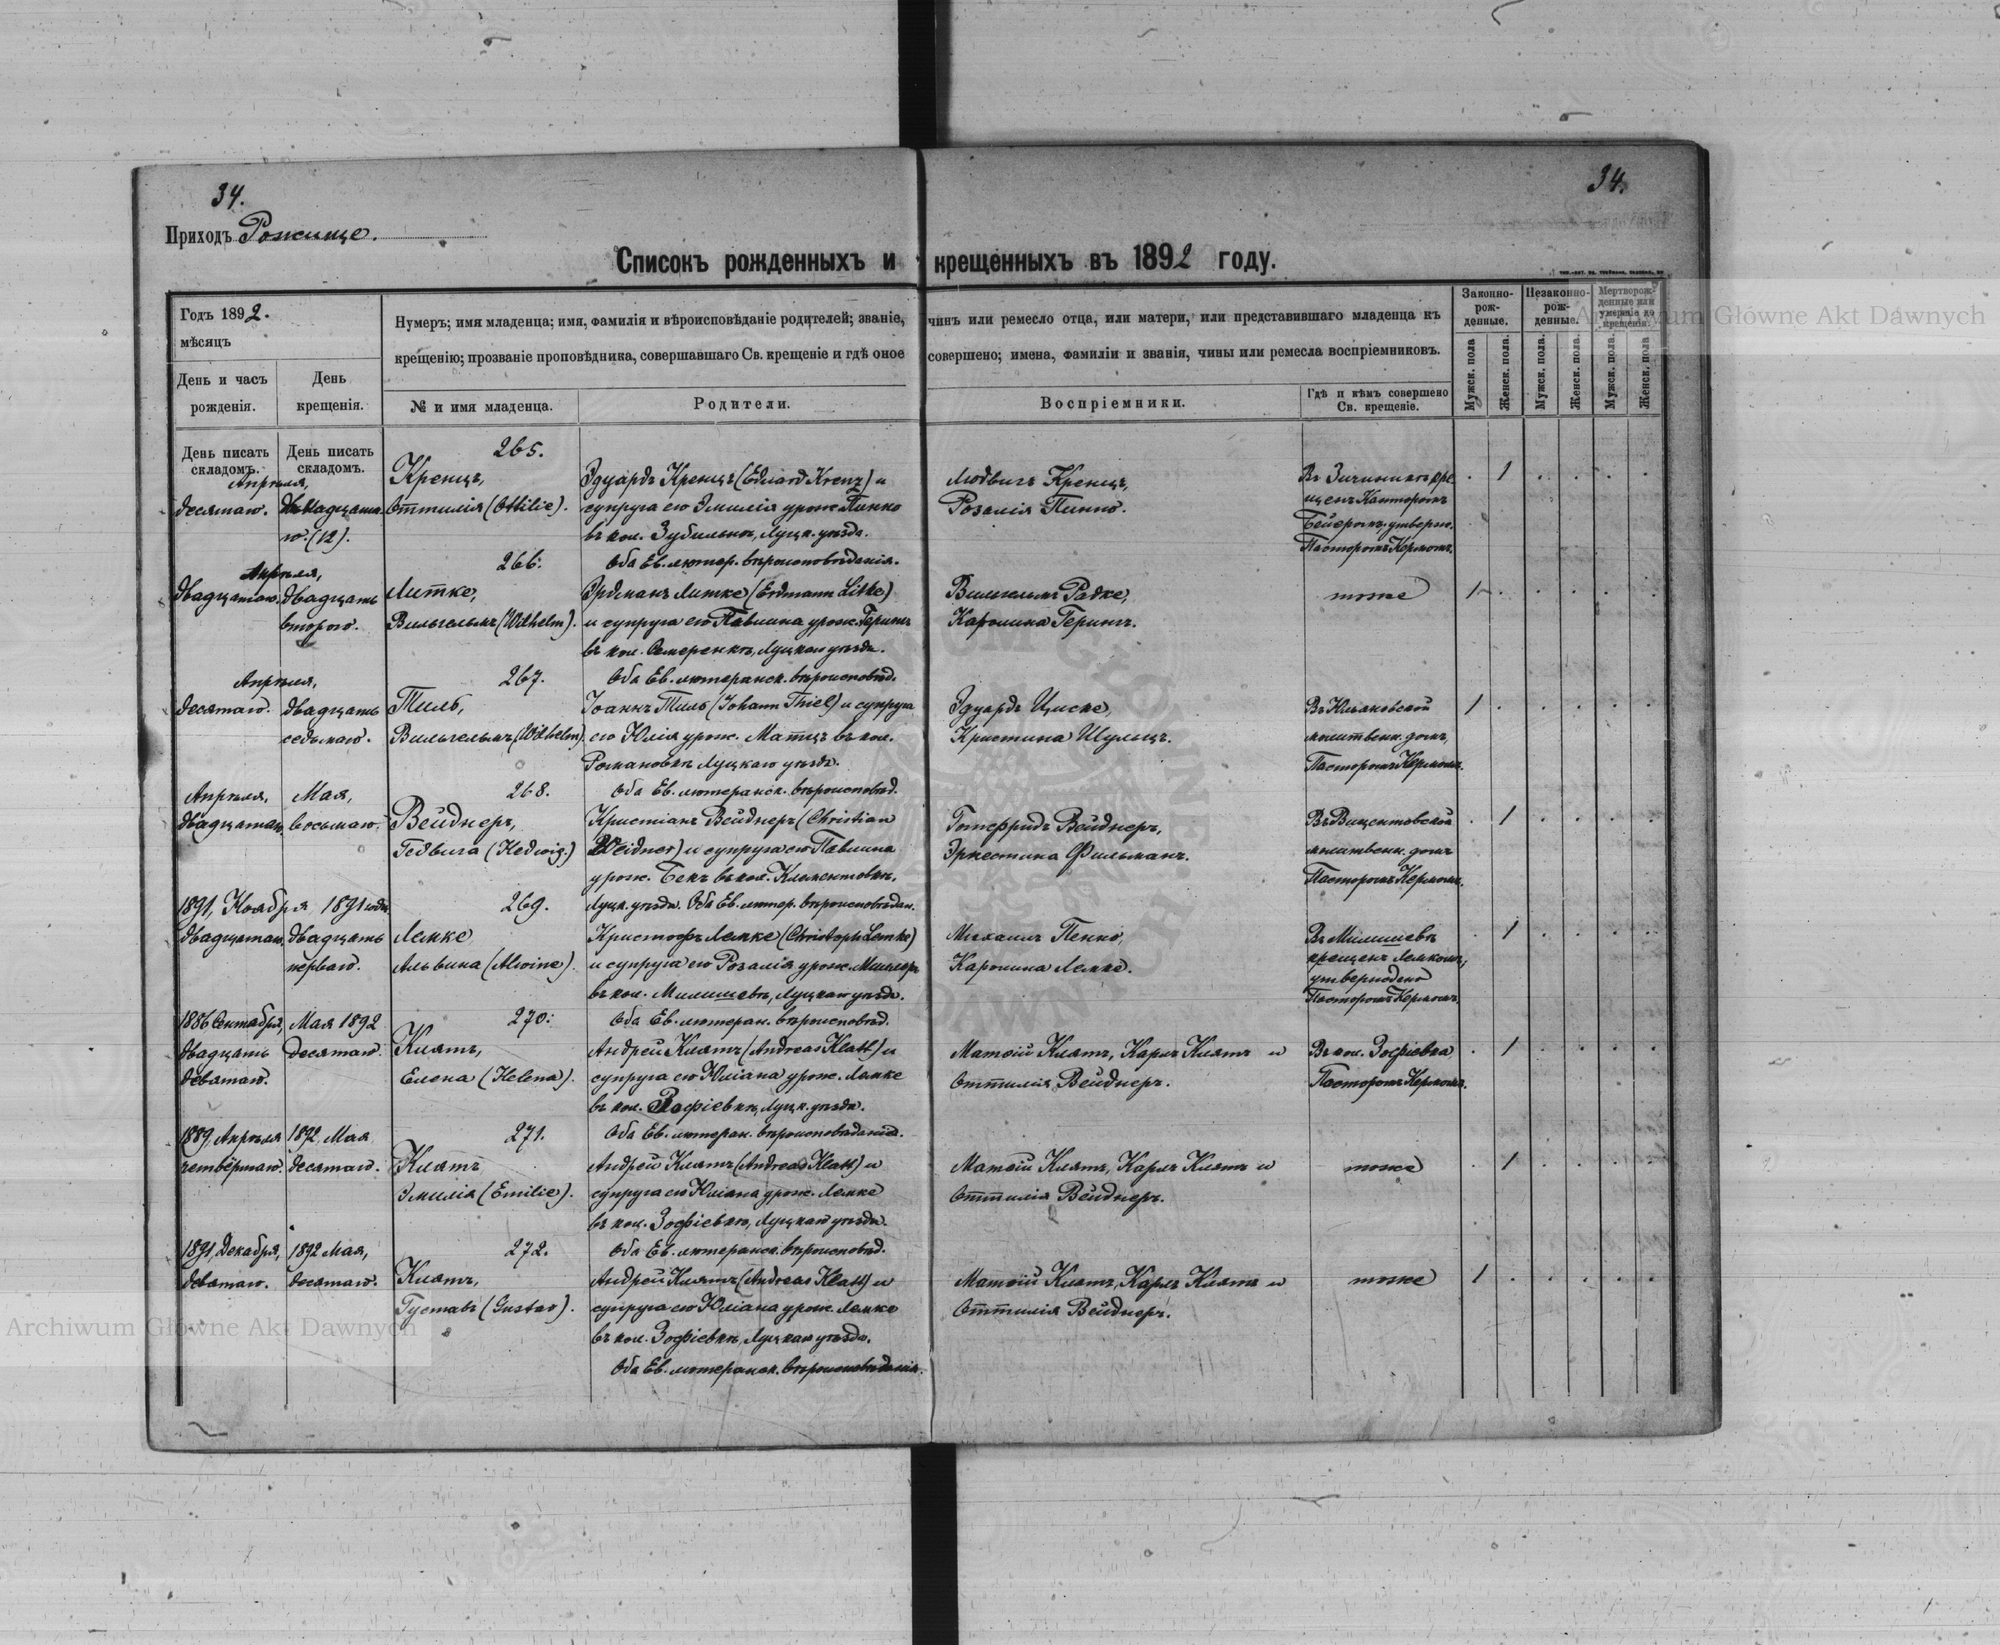 34.
34.
Приходъ Рожище.
Списокъ рожденныхъ и крещенныхъ въ 1892 году.
Годъ 1892.
мѣсяцъ
Нумеръ; имя младенца; имя, фамилія и вѣроисповѣданіе родителей; званіе, чинъ или ремесло отца, или матери, или представившаго младенца къ
крещенію; прозваніе проповѣдника, совершавшаго Св. крещеніе и гдѣ оное совершено; имена, фамиліи и званія, чины или ремесла воспріемниковъ.
Законно-
рож-
денные.
Незаконно-
рож-
денные.
Мертворож-
денные или
умершіе до
крещенія.
День и часъ
рожденія.
День
крещенія.
№ и имя младенца.
Родители.
Воспріемники.
Гдѣ и кѣмъ совершено
Св. крещеніе.
Мужск. пола
Женск. пола.
Мужск. пола.
Женск. пола.
Мужск. пола.
Женск. пола
День писать
складомъ.
День писать
складомъ.
265.
Апрѣля,
десятаго.
(12).
Кренцъ,
Оттилія (Ottilie).
Эдуардъ Кренцъ (Eduard Krenz) и
супруга его Эмилія урож. Пинно
въ кол. Зубильнѣ, Луцк. уѣзда.
Оба Ев. лютер. вѣроисповѣданія.
Людвигъ Кренцъ,
Розалія Пинно.
Пасторомъ Кермомъ.
1
266.
Апрѣля,
двадцатаго.
двадцать
второго.
Литке,
Вильгельмъ (Wilhelm).
Эрдманъ Литке (Erdmann Litke)
и супруга его Павлина урож. Герингъ
въ кол. Семеренкѣ, Луцкаго уѣзда.
Оба Ев. лютеранск. вѣроисповѣд.
Вильгельмъ Радке,
Каролина Герингъ.
тоже
1
267.
Апрѣля,
десятаго.
двадцать
седьмаго.
Тиль,
Вильгельмъ (Wilhelm).
Іоаннъ Тиль (Johann Thiel) и супруга
его Юлія урож. Матцъ въ кол.
Романовкѣ Луцкаго уѣзда.
Оба Ев. лютеранск. вѣроисповѣд.
Эдуардъ Циске,
Кристина Шульцъ.
молитвенн. домѣ,
Пасторомъ Кермомъ.
1
268.
Апрѣля,
двадцатаго.
Мая,
восьмаго.
Вейднеръ,
Гедвига (Hedwig.)
Христіанъ Вейднеръ (Christian
Weidner) и супруга его Павлина
урож. Бекъ въ кол. Клементовкѣ,
Луцк. уѣзда. Оба Ев. лютер. вѣроисповѣдан.
Готфридъ Вейднеръ,
Эрнестина Фильманъ.
Въ Вицентовской
молитвенн. домѣ
Пасторомъ Кермомъ.
1
269.
1891, Ноября 1891 года
двадцатаго.
двадцать
перваго.
Лемке
Альвина (Alwine).
Кристофъ Лемке (Christoph Lemke)
и супруга его Розалія урож. Миллеръ
въ кол. Милишевѣ, Луцкаго уѣзда.
Оба Ев. лютеран. вѣроисповѣд.
Михаилъ Пенно,
Каролина Лемке.
Въ Милишевѣ
крещенъ Лемкомъ;
утверждено
Пасторомъ Кермомъ.
1
270.
1886 Сентября,
двадцать
девятаго.
Мая 1892
десятаго.
Клятъ,
Елена (Helena).
Андрей Клятъ (Andreas Klatt) и
супруга его Юліана урож. Лемке
въ кол. Зофіевкѣ, Луцк. уѣзда.
Оба Ев. лютеран. вѣроисповѣданія.
Матѳій Клятъ, Карлъ Клятъ и
Оттилія Вейднеръ.
Въ кол. Зофіевка
Пасторомъ Кермомъ.
1
271.
1889, Апрѣля
четвёртаго.
1892, Мая
десятаго.
Клятъ
Эмилія (Emilie).
Андрей Клятъ (Andreas Klatt) и
супруга его Юліана урож. Лемке
въ кол. Зофіевкѣ, Луцкаго уѣзда.
Оба Ев. лютеранск. вѣроисповѣд.
Матѳій Клятъ, Карлъ Клятъ и
Оттилія Вейднеръ.
тоже
1
272.
1891, Декабря,
девятаго.
1892 Мая,
десятаго.
Клятъ,
Густавъ (Gustav).
Андрей Клятъ (Andreas Klatt) и
супруга его Юліана урож. Лемке
въ кол. Зофіевкѣ, Луцкаго уѣзда.
Оба Ев. лютеранск. вѣроисповѣданія.
Матѳій Клятъ, Карлъ Клятъ и
Оттилія Вейднеръ.
тоже
1
Archiwum Główne Akt Dawnych
Archiwum Główne Akt Dawnych